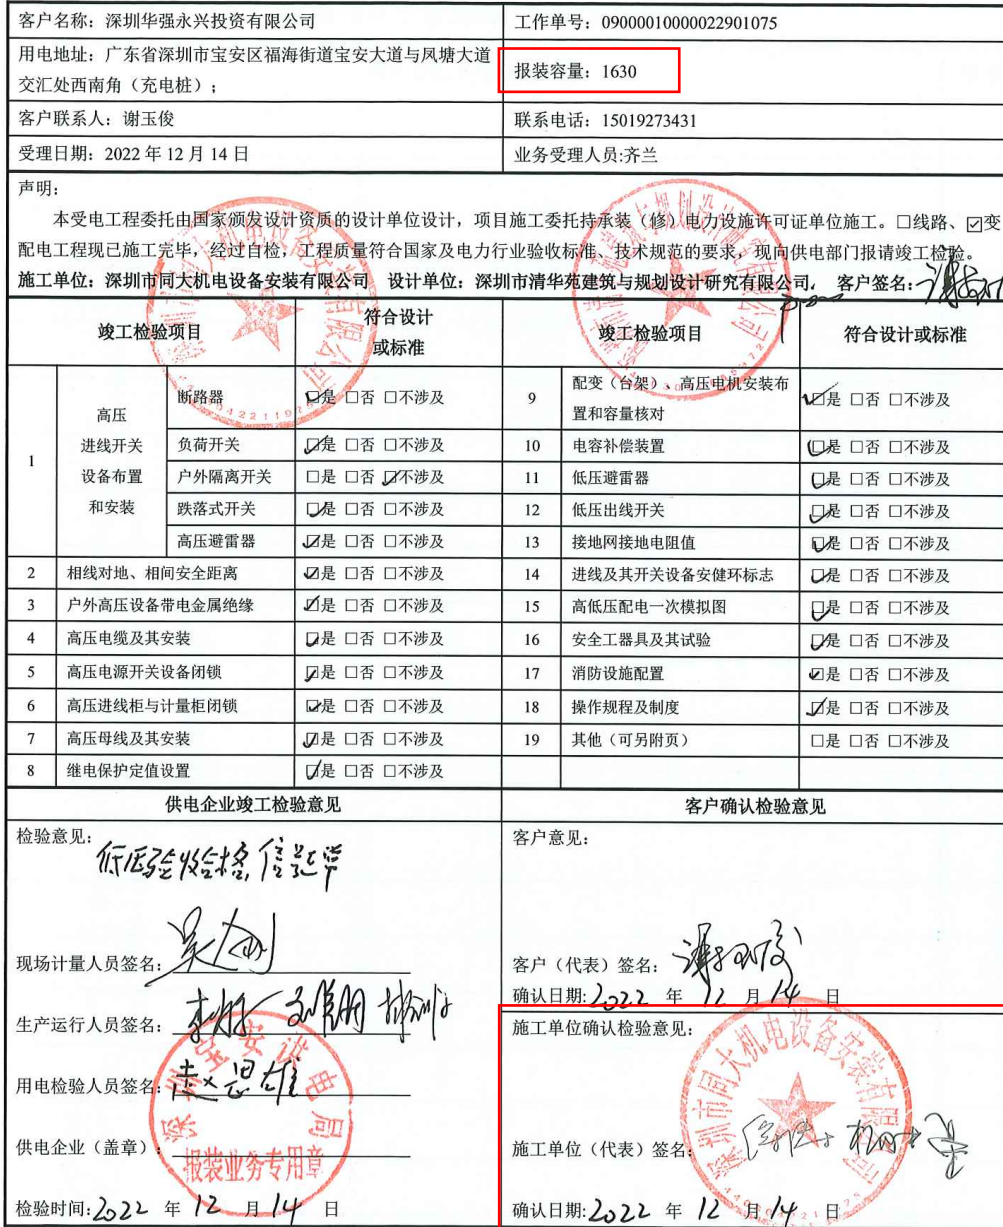 客户名称：深圳华强永兴投资有限公司
工作单号：09000010000022901075
用电地址：广东省深圳市宝安区福海街道宝安大道与凤塘大道
交汇处西南角（充电桩）；
报装容量：1630
客户联系人：谢玉俊
联系电话：15019273431
受理日期：2022 年 12 月 14 日
业务受理人员:齐兰
声明：
本受电工程委托由国家颁发设计资质的设计单位设计，项目施工委托持承装（修）电力设施许可证单位施工。☐线路、☑变
配电工程现已施工完毕，经过自检，工程质量符合国家及电力行业验收标准、技术规范的要求，现向供电部门报请竣工检验。
施工单位：深圳市同大机电设备安装有限公司 设计单位：深圳市清华苑建筑与规划设计研究有限公司. 客户签名：
竣工检验项目 符合设计或标准 竣工检验项目 符合设计或标准
1 高压进线开关设备布置和安装
断路器 ☑是 ☐否 ☐不涉及
9 配变（台架）、高压电机安装布置和容量核对 ☑是 ☐否 ☐不涉及
负荷开关 ☑是 ☐否 ☐不涉及
10 电容补偿装置 ☑是 ☐否 ☐不涉及
户外隔离开关 ☐是 ☐否 ☑不涉及
11 低压避雷器 ☑是 ☐否 ☐不涉及
跌落式开关 ☑是 ☐否 ☐不涉及
12 低压出线开关 ☑是 ☐否 ☐不涉及
高压避雷器 ☑是 ☐否 ☐不涉及
13 接地网接地电阻值 ☑是 ☐否 ☐不涉及
2 相线对地、相间安全距离 ☑是 ☐否 ☐不涉及
14 进线及其开关设备安健环标志 ☑是 ☐否 ☐不涉及
3 户外高压设备带电金属绝缘 ☑是 ☐否 ☐不涉及
15 高低压配电一次模拟图 ☑是 ☐否 ☐不涉及
4 高压电缆及其安装 ☑是 ☐否 ☐不涉及
16 安全工器具及其试验 ☑是 ☐否 ☐不涉及
5 高压电源开关设备闭锁 ☑是 ☐否 ☐不涉及
17 消防设施配置 ☑是 ☐否 ☐不涉及
6 高压进线柜与计量柜闭锁 ☑是 ☐否 ☐不涉及
18 操作规程及制度 ☑是 ☐否 ☐不涉及
7 高压母线及其安装 ☑是 ☐否 ☐不涉及
19 其他（可另附页） ☐是 ☐否 ☐不涉及
8 继电保护定值设置 ☑是 ☐否 ☐不涉及
供电企业竣工检验意见
客户确认检验意见
检验意见：
低压验收合格,
客户意见：
现场计量人员签名：
客户（代表）签名：
确认日期:2022 年 12 月 14 日
生产运行人员签名：
施工单位确认检验意见：
深圳市同大机电设备安装有限公司
用电检验人员签名：
深圳宝安供电局
报装业务专用章
供电企业（盖章）：
施工单位（代表）签名：
检验时间:2022 年 12 月 14 日
确认日期:2022 年 12 月 14 日